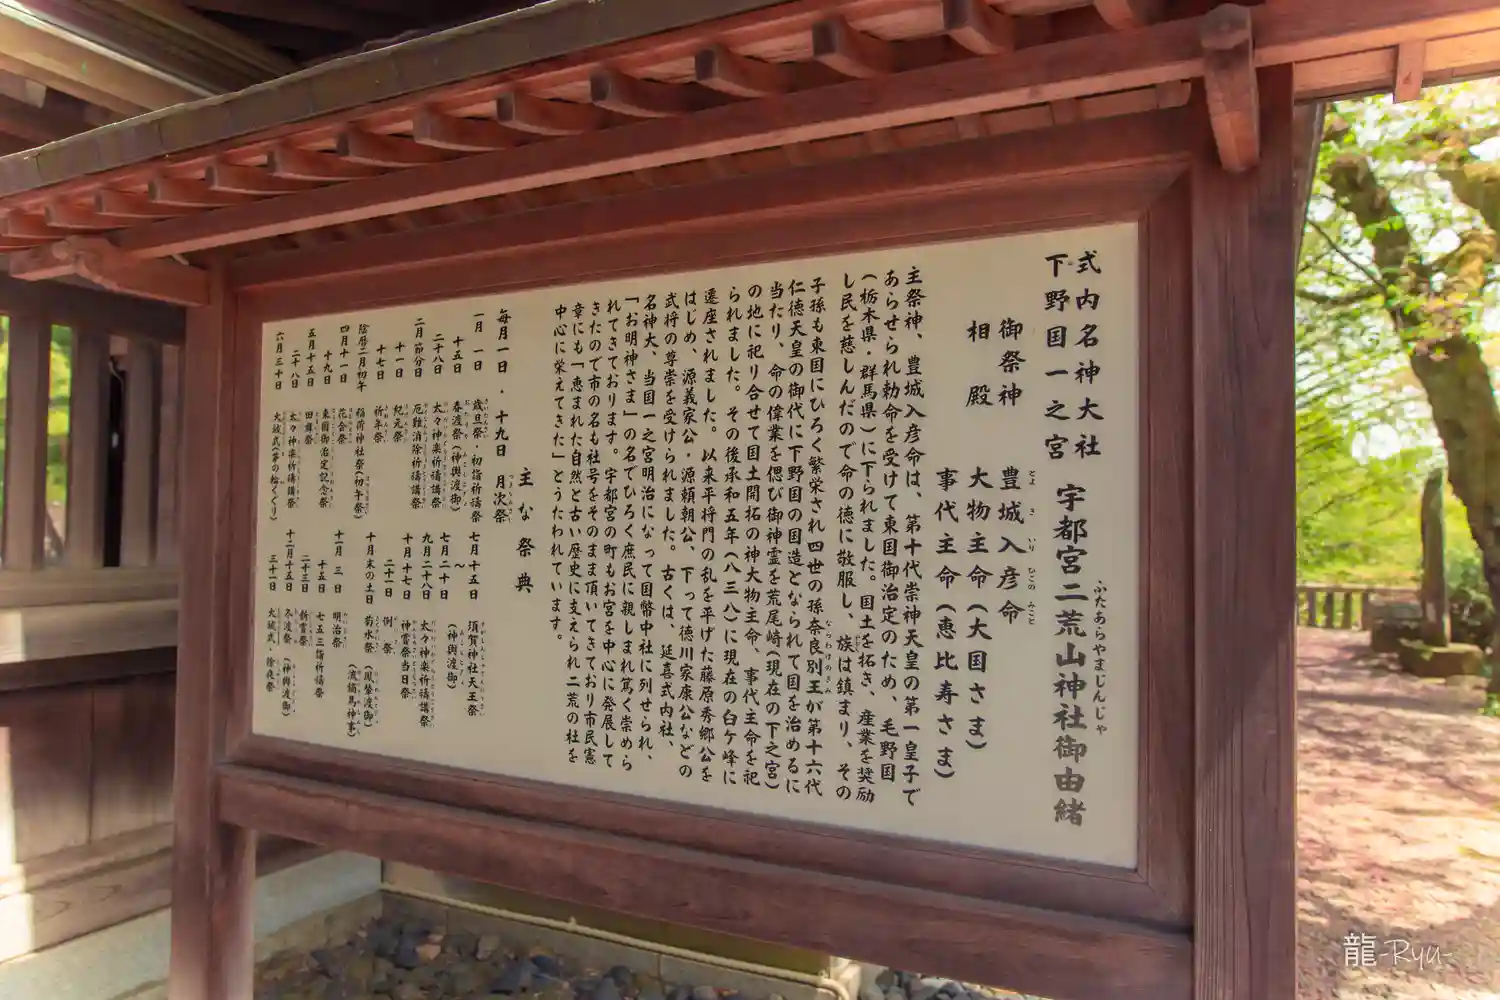 式内名神大社
下野国一之宮
宇都宮二荒山神社御由緒
ふたあらやまじんじゃ
御祭神
豊城入彦命
とよ き いり ひこの みこと
相殿
大物主命(大国さま)
事代主命(恵比寿さま)
主祭神、豊城入彦命は、第十代崇神天皇の第一皇子で
あらせられ勅命を受けて東国御治定のため、毛野国
(栃木県・群馬県)に下られました。国土を拓き、産業を奨励
し民を慈しんだので命の徳に敬服し、族は鎮まり、その
子孫も東国にひろく繁栄され四世の孫奈良別王が第十六代
ならわけのきみ
仁徳天皇の御代に下野国の国造となられて国を治めるに
当たり、命の偉業を偲び御神霊を荒尾崎(現在の下之宮)
の地に祀り合せて国土開拓の神大物主命、事代主命を祀
られました。その後承和五年(八三八)に現在の臼ケ峰に
遷座されました。以来平将門の乱を平げた藤原秀郷公を
はじめ、源義家公・源頼朝公、下って徳川家康公などの
武将の尊崇を受けられました。古くは、延喜式内社、
名神大、当国一之宮明治になって国幣中社に列せられ、
「お明神さま」の名でひろく庶民に親しまれ篤く崇めら
れてきております。宇都宮の町もお宮を中心に発展して
きたので市の名も社号をそのまま頂いてきており市民憲
章にも「恵まれた自然と古い歴史に支えられ二荒の杜を
中心に栄えてきた」とうたわれています。
主な祭典
毎月一日・十九日 月次祭
一月一日 歳旦祭・初詣祈禱祭
十五日 春渡祭(神輿渡御)
二十八日 太々神楽祈禱講祭
二月節分日 厄難消除祈禱講祭
十一日 紀元祭
十七日 祈年祭
陰暦二月初午 稲荷神社祭(初午祭)
四月十一日 花会祭
十九日 東国御治定記念祭
五月十五日 田舞祭
二十八日 太々神楽祈禱講祭
六月三十日 大祓式(茅の輪くぐり)
七月十五日 須賀神社天王祭
〜
七月二十日 (神輿渡御)
九月二十八日 太々神楽祈禱講祭
十月十七日 神嘗祭当日祭
二十一日 例祭
十月末の土日 菊水祭(鳳輦渡御)
(流鏑馬神事)
十一月三日 明治祭
十五日 七五三詣祈禱祭
二十三日 新嘗祭
十二月十五日 冬渡祭(神輿渡御)
三十一日 大祓式・除夜祭
龍-Ryu-